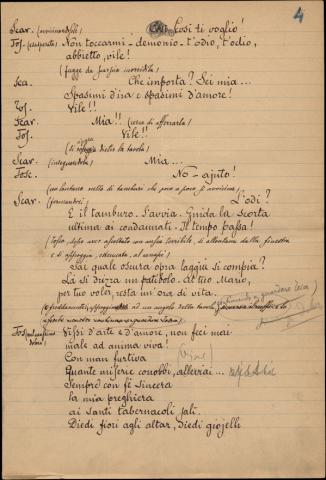 4
Scar. (avvicinandosele) Così ti voglio!
Tos. (disperata) Non toccarmi - demonio - t'odio, t'odio,
abbietto, vile!
(fugge da Scarpia inorridita)
Sca. Che importa? Sei mia...
Spasimi d'ira e spasimi d'amore!
Tos. Vile!!
Scar. Mia!! (cerca di afferrarla)
Tos. Vile!!
(si ripara dietro la tavola)
Scar. (inseguendola) Mia...
Tosc. No - ajuto!
(un lontano rullo di tamburi che poco a poco si avvicina)
Scar. (fermandosi) L'odi?
È il tamburo. S'avvia. Guida la scorta
ultima ai condannati. Il tempo passa!
(Tosca, dopo aver ascoltato con ansia terribile, si allontana dalla finestra
e si appoggia, estenuata, al canapè)
Sai quale oscura opra laggiù si compia?
Là si drizza un patibolo. Al tuo Mario,
per tuo voler, resta un'ora di vita.
(freddamente, appoggiandosi ad un angolo della tavola
Tos. Vissi d'arte e d'amore, non feci mai
male ad anima viva!
Con man furtiva
Quante miserie conobbi, alleviai...
Sempre con fè sincera
la mia preghiera
ai santi tabernacoli salì.
Diedi fiori agli altar, diedi giojelli